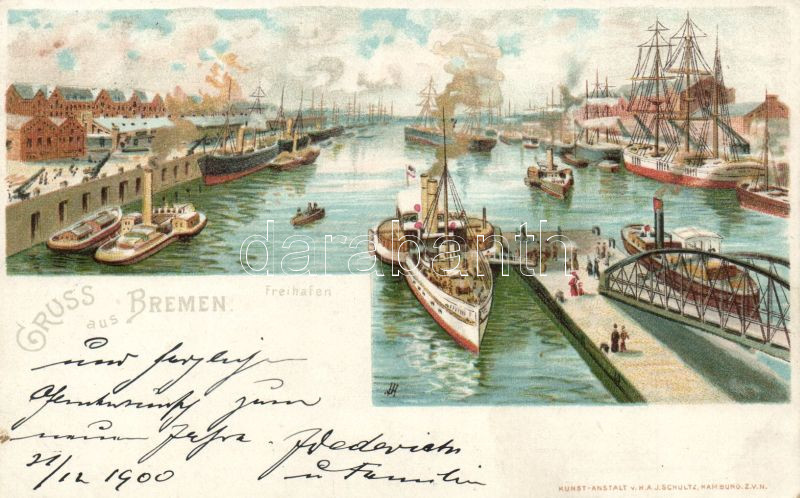 darabanth
GRUSS aus BREMEN.
Freihafen
und herzliche
zum
neuen Jahre. Diederichs
31/12 1900 u Familie
KUNST-ANSTALT v. H.A.J. SCHULTZ, HAMBURG. Z.V.N.